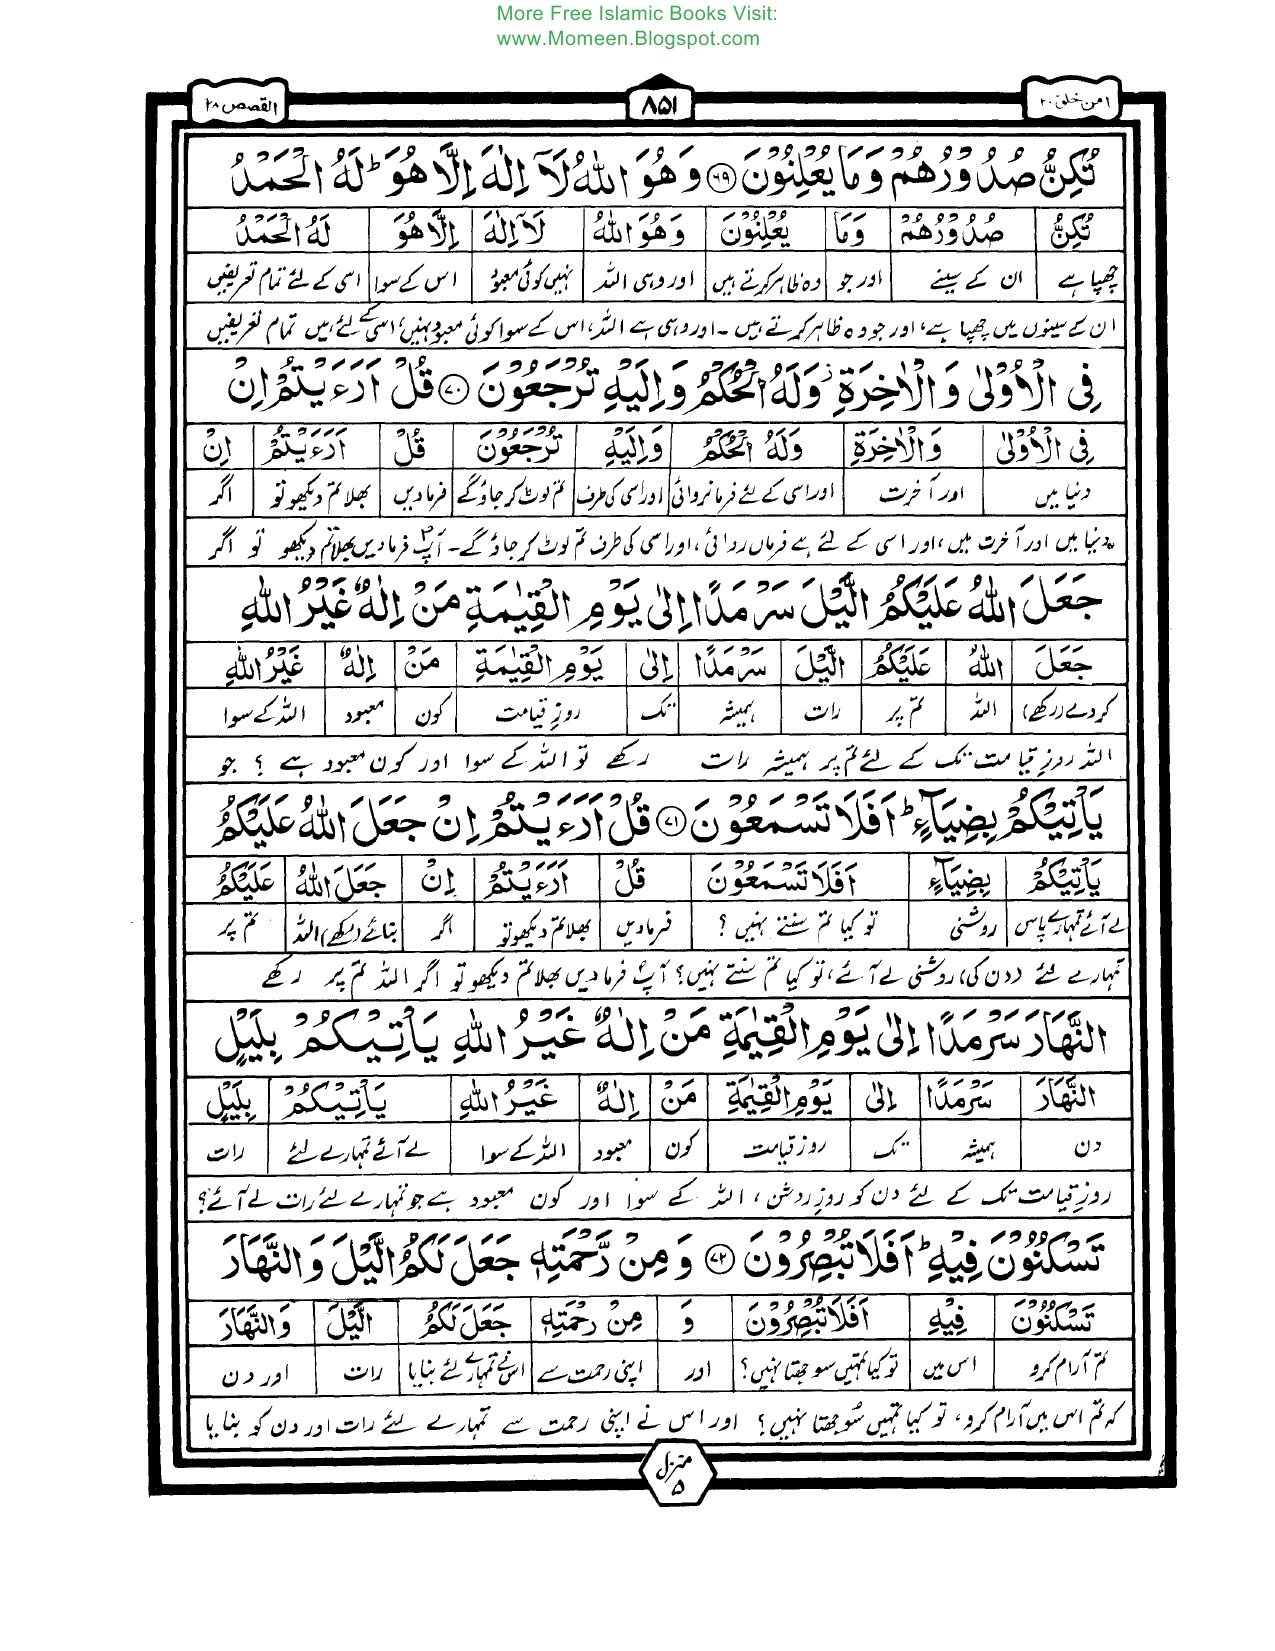 More Free Islamic Books Visit:
www.Momeen.Blogspot.com
امن خلق ۲۰
۸۵۱
القصص ۲۸
تُكِنُّ صُدُوْرُهُمْ وَمَا يُعْلِنُوْنَ ۶۹ وَهُوَ اللّٰهُ لَآ اِلٰهَ اِلَّا هُوَ ؕ لَهُ الْحَمْدُ
تُكِنُّ صُدُوْرُهُمْ وَمَا يُعْلِنُوْنَ وَهُوَ اللّٰهُ لَآ اِلٰهَ اِلَّا هُوَ لَهُ الْحَمْدُ
چھپا ہے ان کے سینے اور جو وہ ظاہر کرتے ہیں اور وہی اللہ نہیں کوئی معبود اس کے سوا اسی کے لئے تمام تعریفیں
ان کے سینوں میں چھپا ہے، اور جو وہ ظاہر کرتے ہیں ۔ اور وہی ہے اللہ، اس کے سوا کوئی معبود نہیں، اسی کے لئے ہیں تمام تعریفیں
فِي الْاُوْلٰى وَالْاٰخِرَةِ ۫ وَلَهُ الْحُكْمُ وَاِلَيْهِ تُرْجَعُوْنَ ۷۰ قُلْ اَرَءَيْتُمْ اِنْ
فِي الْاُوْلٰى وَالْاٰخِرَةِ وَلَهُ الْحُكْمُ وَاِلَيْهِ تُرْجَعُوْنَ قُلْ اَرَءَيْتُمْ اِنْ
دنیا میں اور آخرت اور اسی کے لئے فرمانروائی اور اسی کی طرف تم لوٹ کر جاؤ گے فرمادیں بھلا تم دیکھو تو اگر
دنیا میں اور آخرت میں، اور اسی کے لئے ہے فرماں روائی، اور اسی کی طرف تم لوٹ کر جاؤ گے۔ آپؐ فرمادیں بھلا تم دیکھو تو اگر
جَعَلَ اللّٰهُ عَلَيْكُمُ الَّيْلَ سَرْمَدًا اِلٰى يَوْمِ الْقِيٰمَةِ مَنْ اِلٰهٌ غَيْرُ اللّٰهِ
جَعَلَ اللّٰهُ عَلَيْكُمُ الَّيْلَ سَرْمَدًا اِلٰى يَوْمِ الْقِيٰمَةِ مَنْ اِلٰهٌ غَيْرُ اللّٰهِ
کردے (رکھے) اللہ تم پر رات ہمیشہ تک روزِ قیامت کون معبود اللہ کے سوا
اللہ روزِ قیامت تک کے لئے تم پر ہمیشہ رات رکھے تو اللہ کے سوا اور کون معبود ہے ؟ جو
يَاْتِيْكُمْ بِضِيَآءٍ ؕ اَفَلَا تَسْمَعُوْنَ ۷۱ قُلْ اَرَءَيْتُمْ اِنْ جَعَلَ اللّٰهُ عَلَيْكُمُ
يَاْتِيْكُمْ بِضِيَآءٍ اَفَلَا تَسْمَعُوْنَ قُلْ اَرَءَيْتُمْ اِنْ جَعَلَ اللّٰهُ عَلَيْكُمُ
لے آئے تمہارے پاس روشنی تو کیا تم سنتے نہیں ؟ فرمادیں بھلا تم دیکھو تو اگر بنائے (رکھے) اللہ تم پر
تمہارے لئے (دن کی) روشنی لے آئے، تو کیا تم سنتے نہیں؟ آپؐ فرمادیں بھلا تم دیکھو تو اگر اللہ تم پر رکھے
النَّهَارَ سَرْمَدًا اِلٰى يَوْمِ الْقِيٰمَةِ مَنْ اِلٰهٌ غَيْرُ اللّٰهِ يَاْتِيْكُمْ بِلَيْلٍ
النَّهَارَ سَرْمَدًا اِلٰى يَوْمِ الْقِيٰمَةِ مَنْ اِلٰهٌ غَيْرُ اللّٰهِ يَاْتِيْكُمْ بِلَيْلٍ
دن ہمیشہ تک روز قیامت کون معبود اللہ کے سوا لے آئے تمہارے لئے رات
روزِ قیامت تک کے لئے دن کو روزِ روشن، اللہ کے سوا اور کون معبود ہے جو تمہارے لئے رات لے آئے؟
تَسْكُنُوْنَ فِيْهِ ؕ اَفَلَا تُبْصِرُوْنَ ۷۲ وَمِنْ رَّحْمَتِهٖ جَعَلَ لَكُمُ الَّيْلَ وَالنَّهَارَ
تَسْكُنُوْنَ فِيْهِ اَفَلَا تُبْصِرُوْنَ وَ مِنْ رَحْمَتِهٖ جَعَلَ لَكُمُ الَّيْلَ وَالنَّهَارَ
تم آرام کرو اس میں تو کیا تمہیں سوجھتا نہیں؟ اور اپنی رحمت سے اس نے تمہارے لئے بنایا رات اور دن
کہ تم اس میں آرام کرو، تو کیا تمہیں سُوجھتا نہیں؟ اور اس نے اپنی رحمت سے تمہارے لئے رات اور دن کو بنایا
منزل ۵